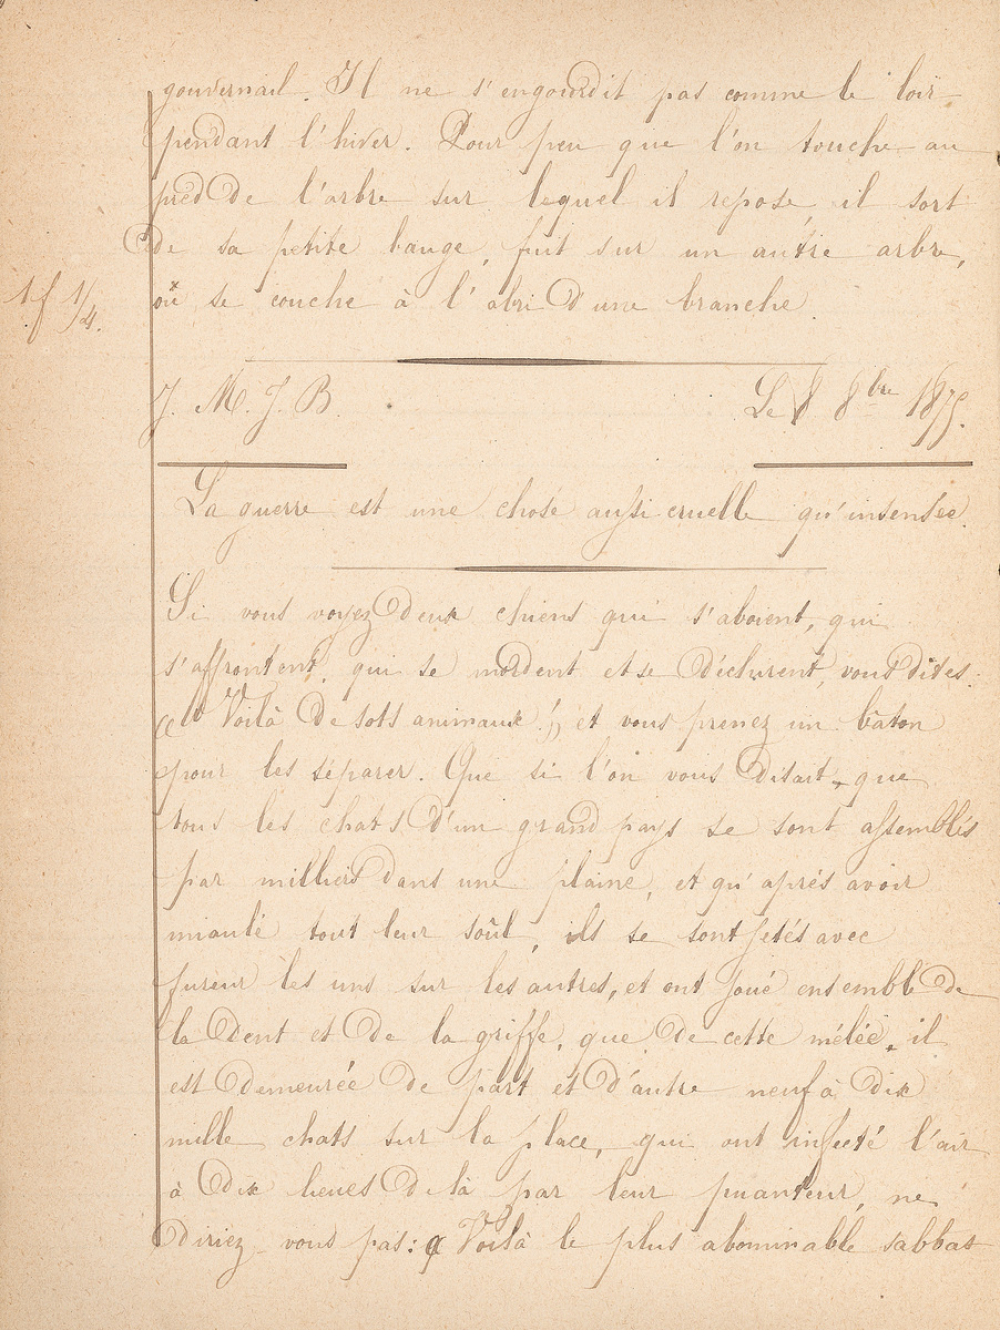 gouvernail. Il ne s'engourdit pas comme le loir
pendant l'hiver. Pour peu que l'on touche au
pied de l'arbre sur lequel il repose, il sort
de sa petite bauge, fuit sur un autre arbre,
où se couche à l'abri d'une branche.
1f 1/4.
J. M. J. B.
Le 8 8bre 1875.
La guerre est une chose aussi cruelle qu'insensée.
Si vous voyez deux chiens qui s'aboient, qui
s'affrontent, qui se mordent et se déchirent, vous dites.
« Voilà de sots animaux! » et vous prenez un bâton
pour les séparer. Que si l'on vous disait, que
tous les chats d'un grand pays se sont assemblés
par milliers dans une plaine, et qu'après avoir
miaulé tout leur soûl, ils se sont jetés avec
fureur les uns sur les autres, et ont joué ensemble de
la dent et de la griffe, que de cette mêlée, il
est demeurée de part et d'autre neuf à dix
mille chats sur la place, qui ont infecté l'air
à dix lieues de là par leur puanteur, ne
diriez-vous pas: « Voilà le plus abominable sabbat